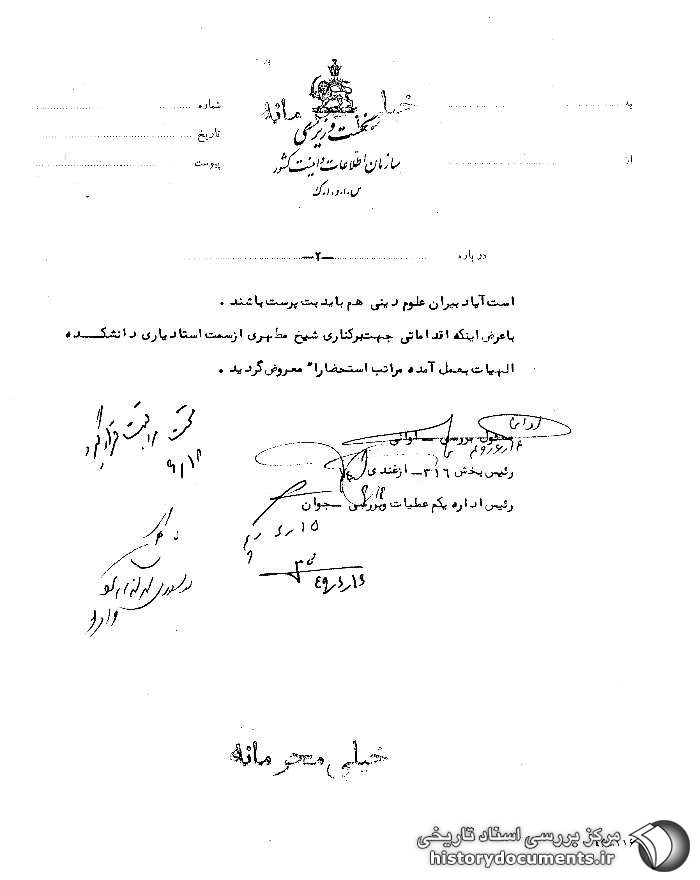 خیلی محرمانه
نخست وزیری
سازمان اطلاعات و امنیت کشور
س.ا.و.ا.ک
به
شماره
تاریخ
از
پیوست
درباره -۲-
است آیا دبیران علوم دینی هم باید بت پرست باشند .
با عرض اینکه اقداماتی جهت برکناری شیخ مطهری از سمت استادیاری دانشکده
الهیات بعمل آمده مراتب استحضارا" معروض گردید .
تحت مراقبت قرار گیرد
۹/۱۸
مسئول بررسی - لوائی
رئیس بخش ۳۱۶ - ازغندی
رئیس اداره یکم عملیات و بررسی - جوان
۴۹/۶/۱۶
خیلی محرمانه
مرکز بررسی اسناد تاریخی
historydocuments.ir